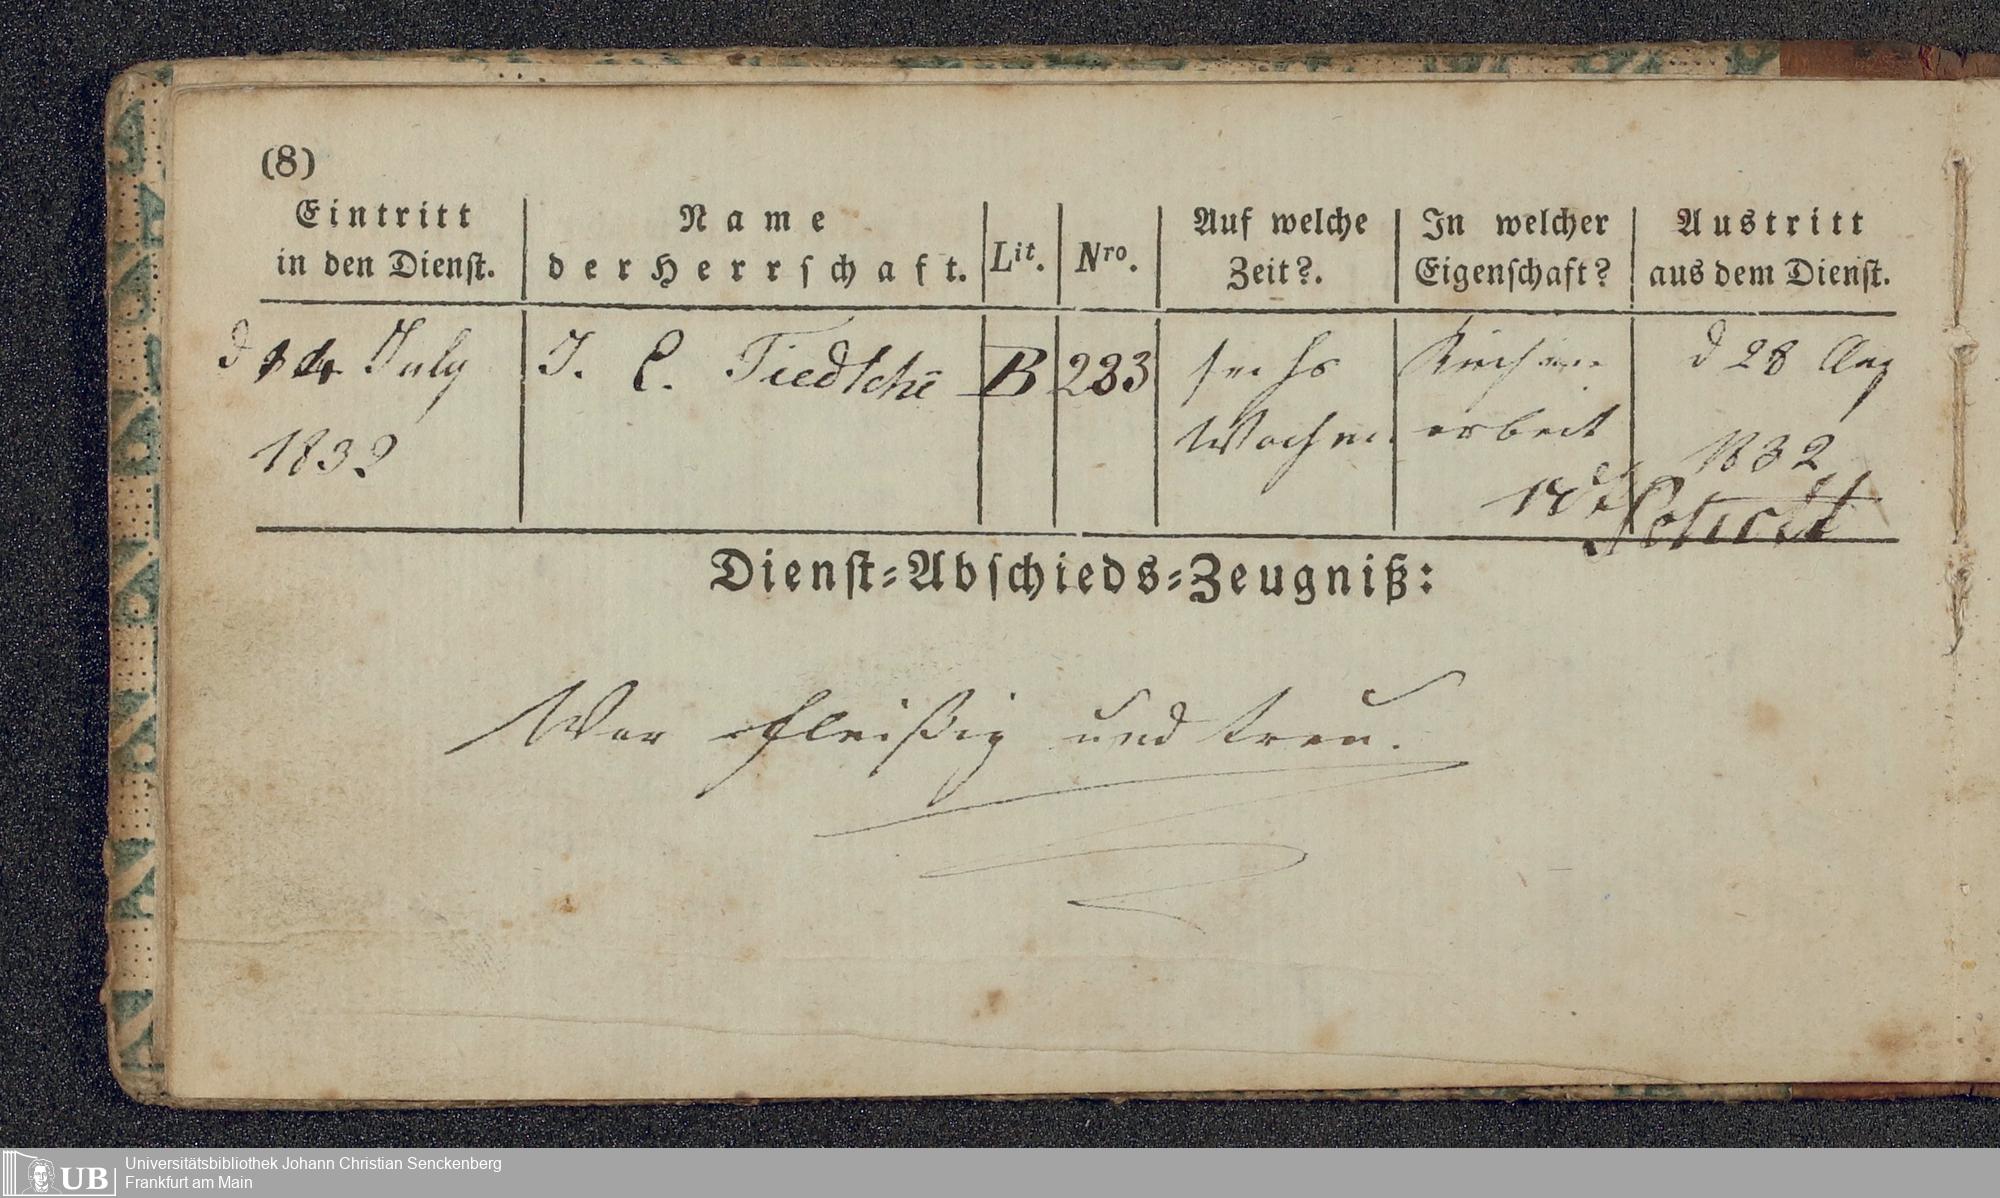 (8)
Eintritt
in den Dienst.
Name
der Herrschaft.
Lit.
Nro.
Auf welche
Zeit?.
In welcher
Eigenschaft?
Austritt
aus dem Dienst.
d July
1832
J. C.
B
233
sechs
Wochen
arbeit
d 28 Aug
1832
Dienst-Abschieds-Zeugniß:
War fleißig und treu.
Universitätsbibliothek Johann Christian Senckenberg
Frankfurt am Main
UB